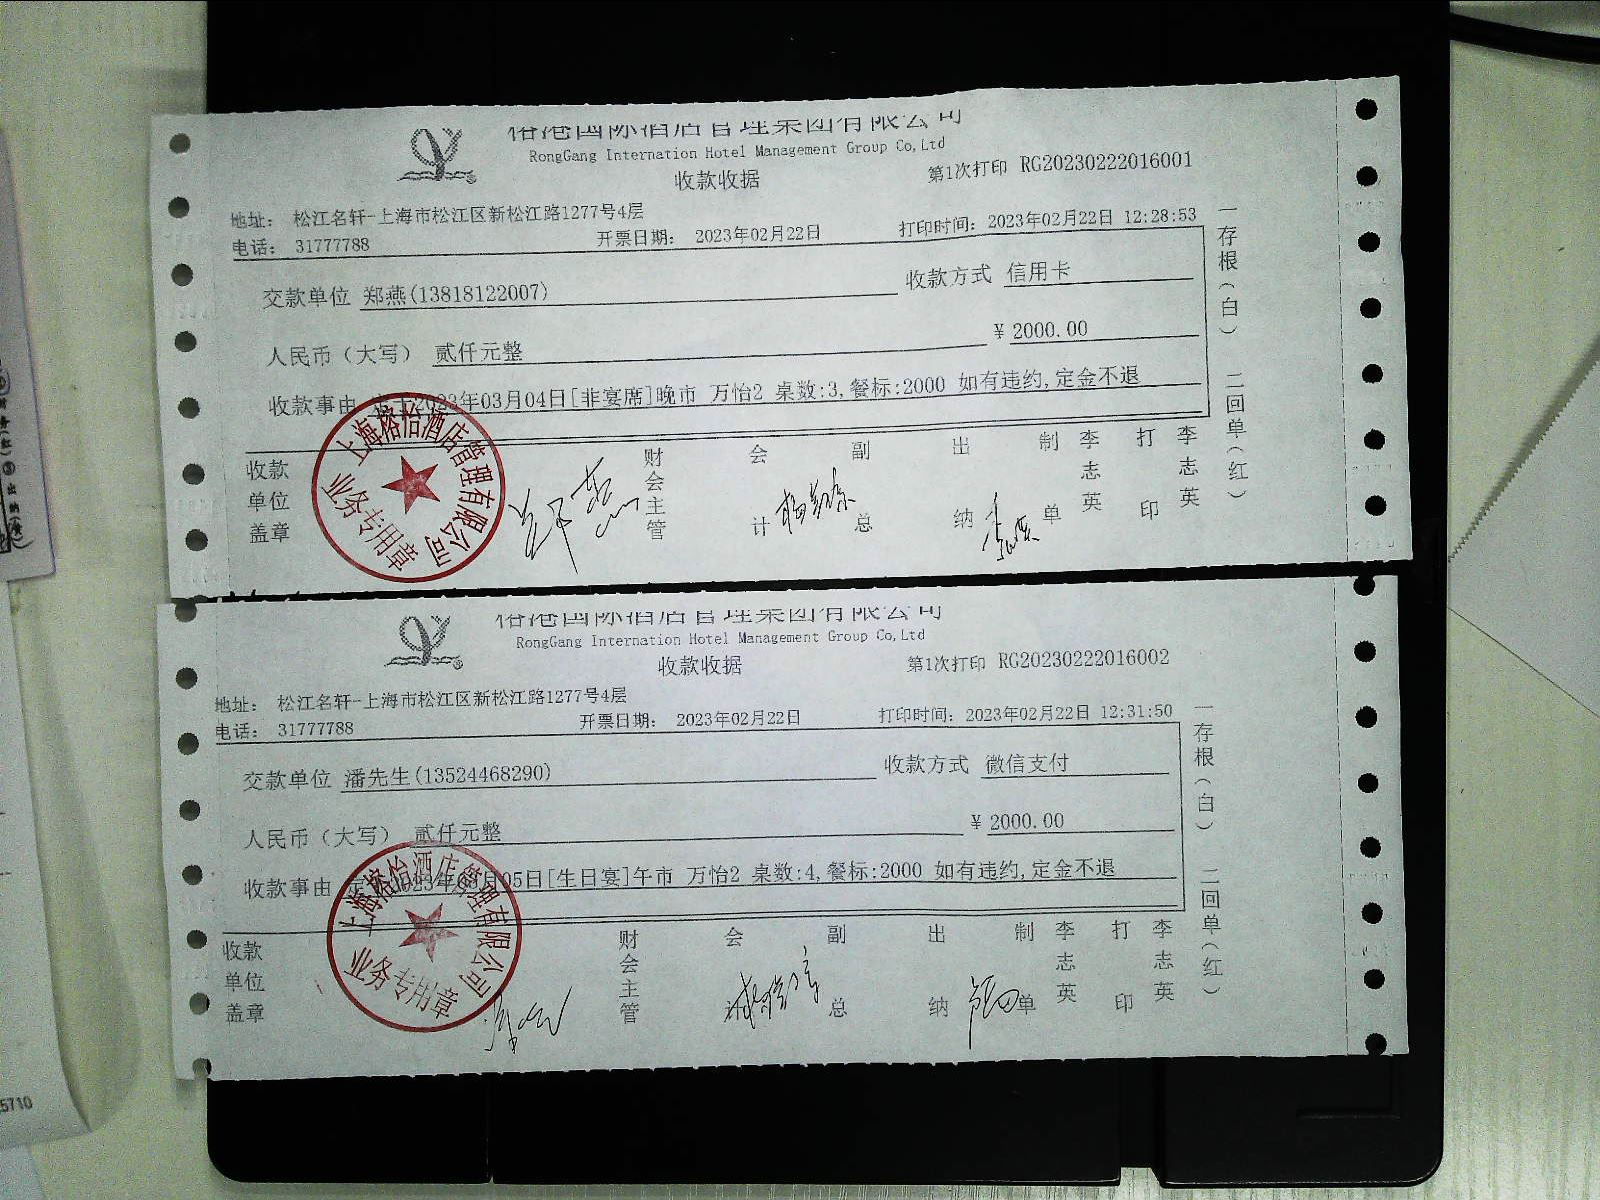 国际酒店管理集团有限公司
RongGang Internation Hotel Management Group Co,Ltd
收款收据
第1次打印 RG20230222016001
地址： 松江名轩-上海市松江区新松江路1277号4层
电话： 31777788
开票日期： 2023年02月22日
打印时间：2023年02月22日 12:28:53
交款单位 郑燕(13818122007)
收款方式 信用卡
人民币（大写） 贰仟元整
¥ 2000.00
收款事由 2023年03月04日[非宴席]晚市 万怡2 桌数:3,餐标:2000 如有违约,定金不退
一存根（白） 二回单（红）
收款单位盖章
财会主管
会计
副总
出纳
制单
李志英
打印
李志英
上海榕怡酒店管理有限公司
业务专用章
国际酒店管理集团有限公司
RongGang Internation Hotel Management Group Co,Ltd
收款收据
第1次打印 RG20230222016002
地址： 松江名轩-上海市松江区新松江路1277号4层
电话： 31777788
开票日期： 2023年02月22日
打印时间：2023年02月22日 12:31:50
交款单位 潘先生(13524468290)
收款方式 微信支付
人民币（大写） 贰仟元整
¥ 2000.00
收款事由 定 2023年03月05日[生日宴]午市 万怡2 桌数:4,餐标:2000 如有违约,定金不退
一存根（白） 二回单（红）
收款单位盖章
财会主管
会计
副总
出纳
制单
李志英
打印
李志英
上海榕怡酒店管理有限公司
业务专用章
5710